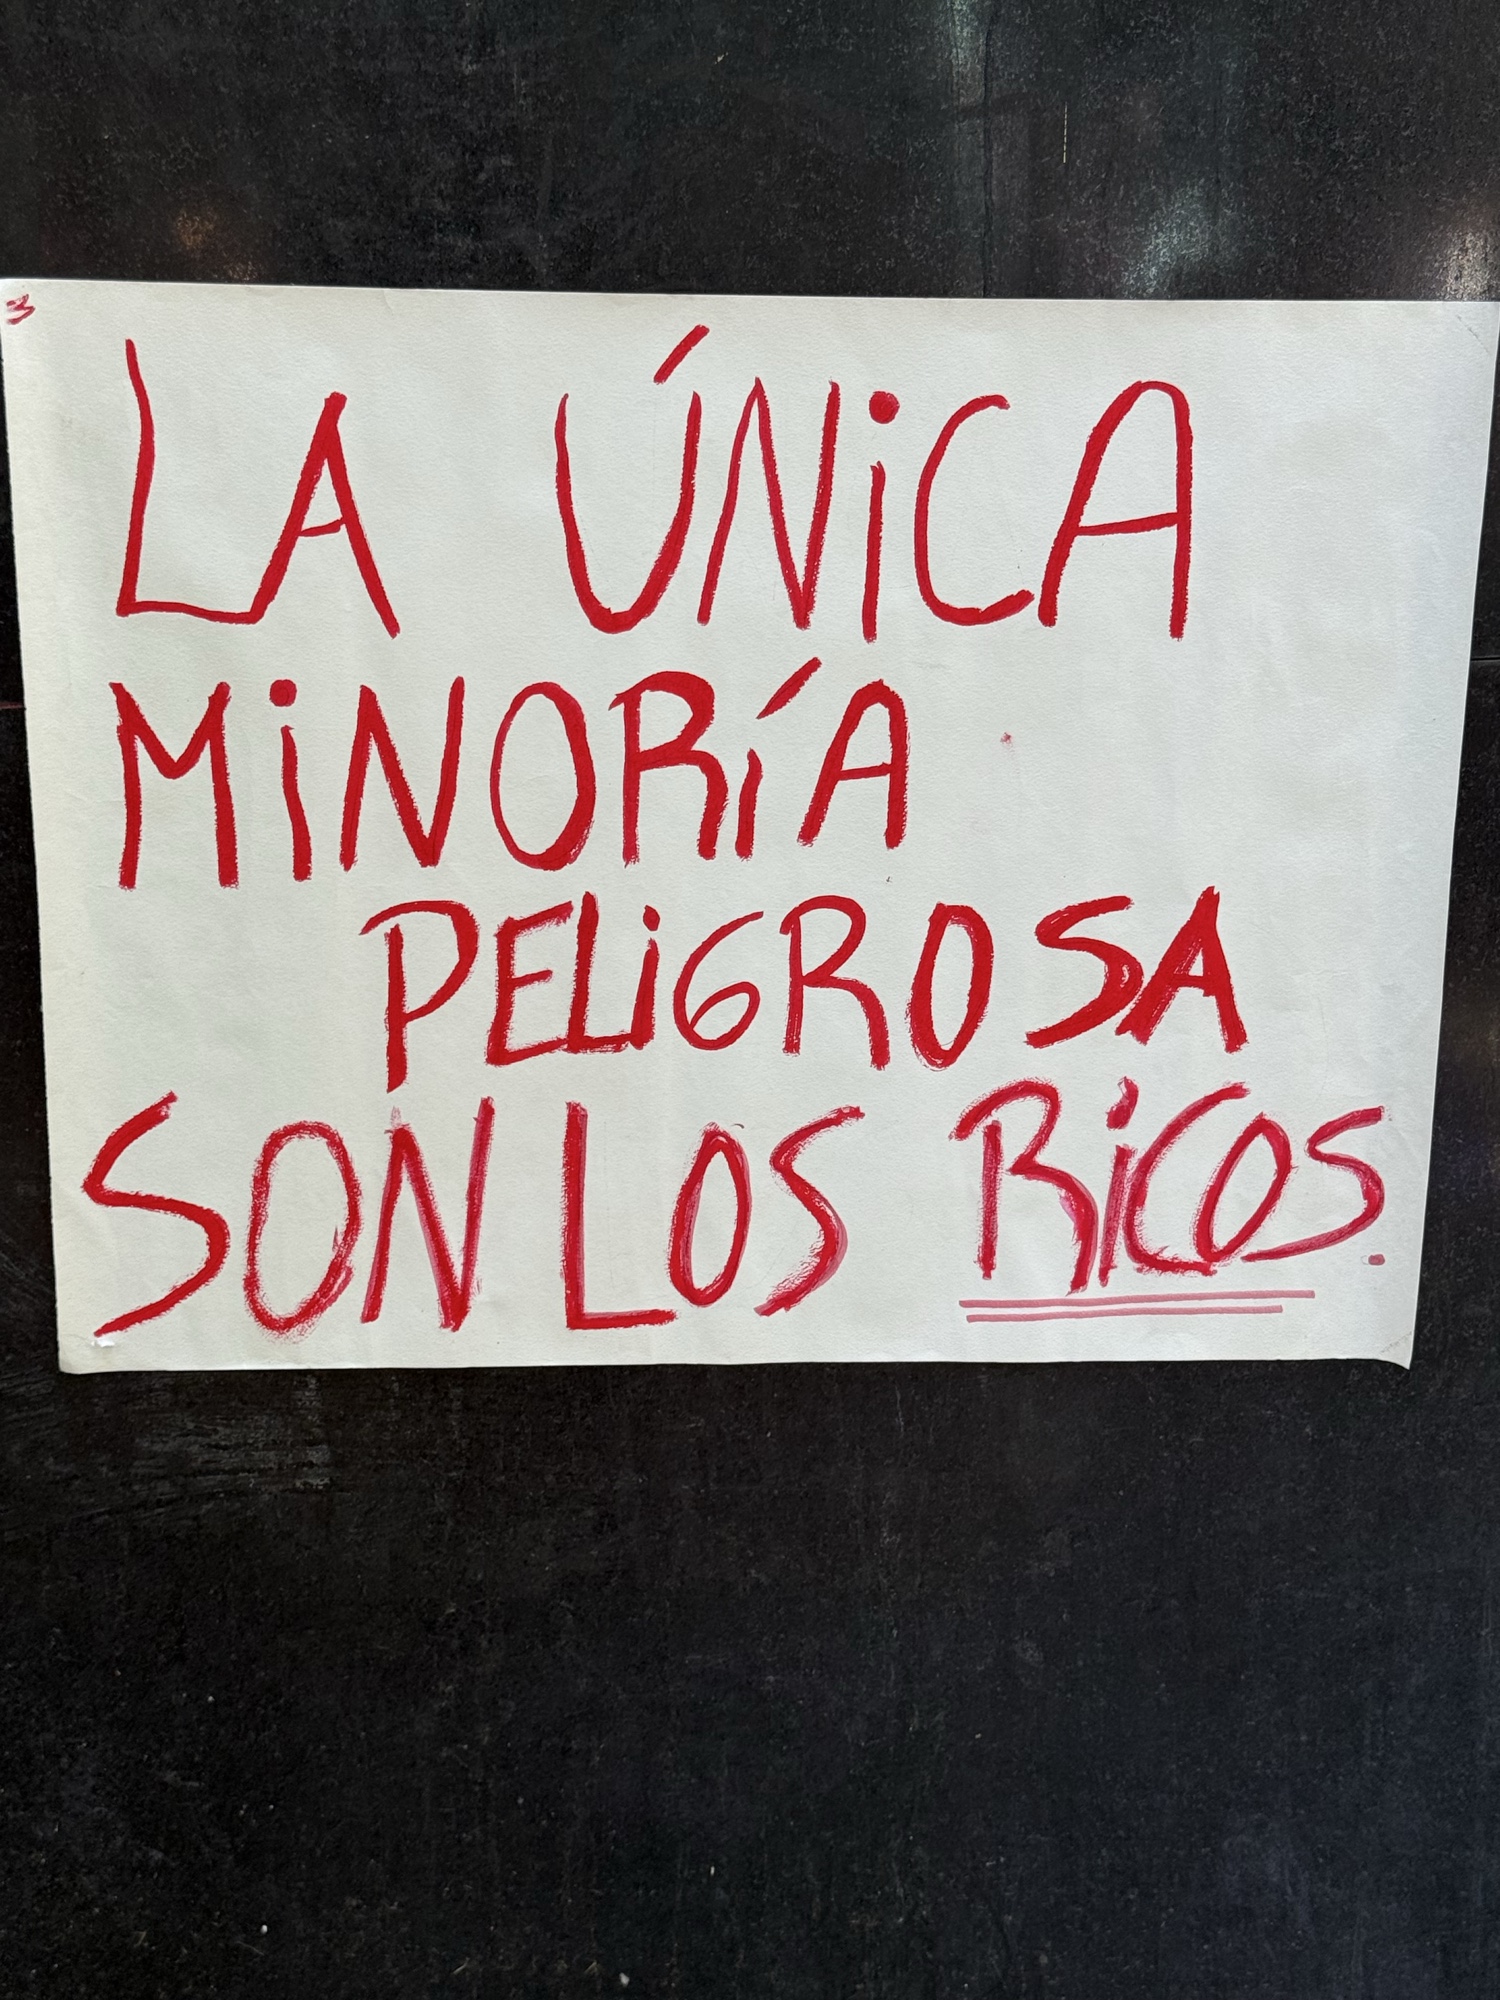 LA ÚNiCA
MiNORÍA
PELiGROSA
SON LOS RiCOS.